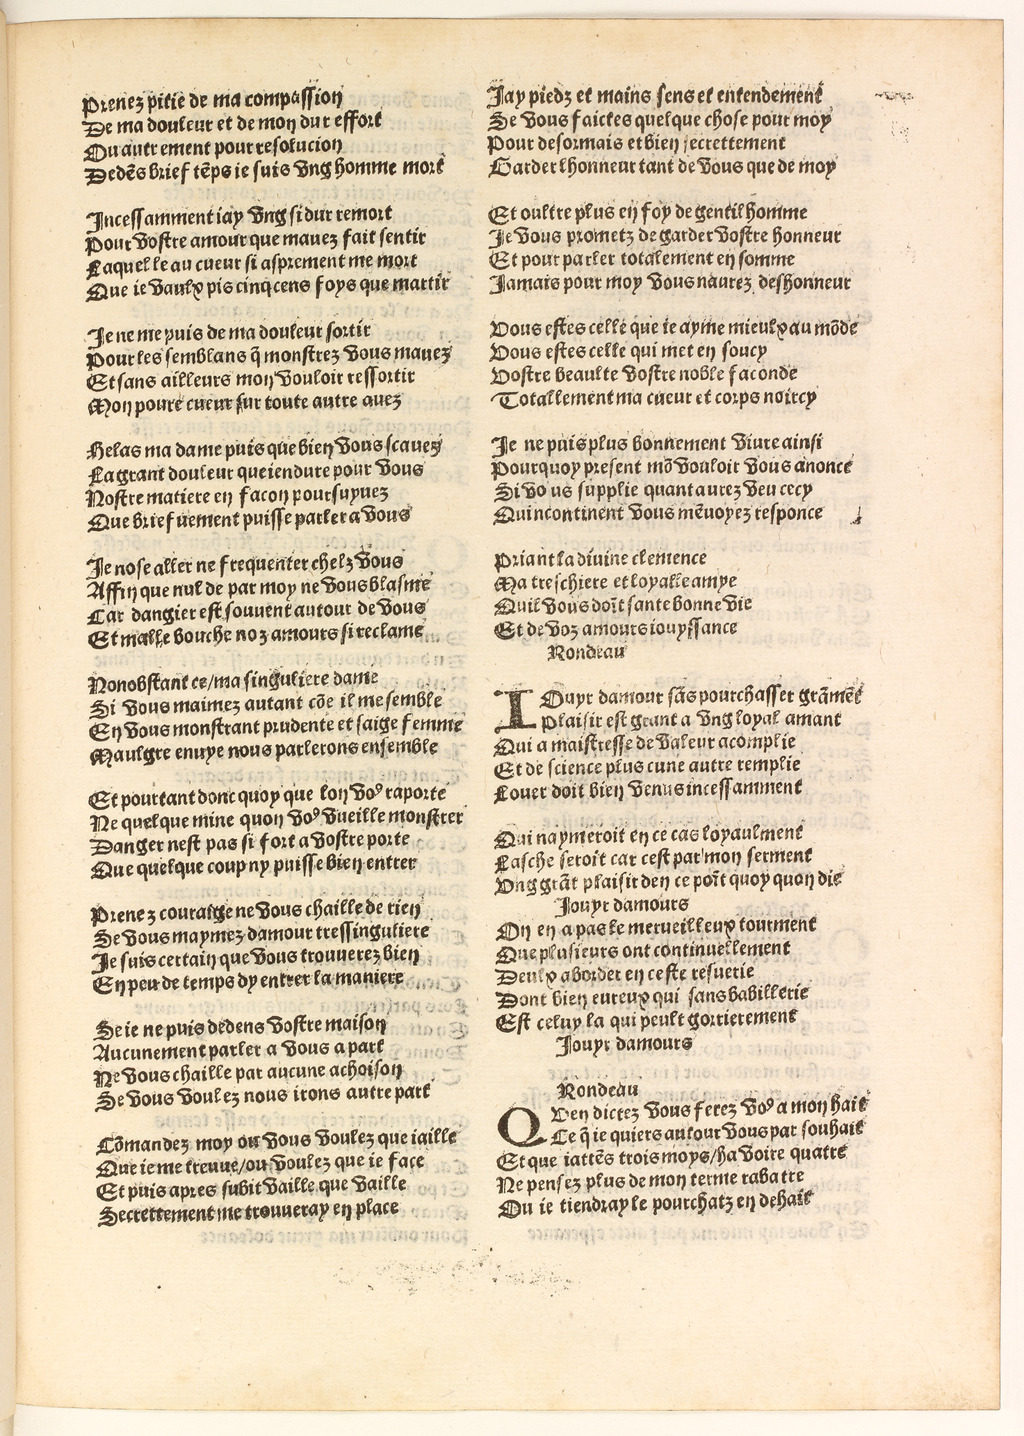 Prenez pitie de ma compassion
De ma douleur et de mon dur effort
Ou autrement pour resolucion
Dedẽs brief tẽps ie suis vng homme mort
Incessamment iay vng si dur remort
Pour vostre amour que mauez fait sentir
Laquelle au cueur si asprement me mort
Que ie vaulx pis cinq cens foys que martir
Je ne me puis de ma douleur sortir
Pour les semblans q̃ monstrez vous mauez
Et sans ailleurs mon vouloir ressortir
Mon poure cueur sur toute autre auez
Helas ma dame puis que bien vous scauez
La grant douleur que iendure pour vous
Nostre matiere en facon poursuyuez
Que briefuement puisse parler a vous
Je nose aller ne frequenter chelz vous
Affin que nul de par moy ne vous blasme
Car dangier est souuent autour de vous
Et malle bouche noz amours si reclame
Nonobstant ce/ma singuliere dame
Si vous maimez autant cõe il me semble
En vous monstrant prudente et saige femme
Maulgre enuye nous parlerons ensemble
Et pourtant donc quoy que lon voꝰ raporte
Ne quelque mine quon voꝰ vueille monstrer
Danger nest pas si fort a vostre porte
Que quelque coup ny puisse bien entrer
Prenez couraige ne vous chaille de rien
Se vous maymez damour tressinguliere
Je suis certain que vous trouuerez bien
En peu de temps dy entrer la maniere
Se ie ne puis dedens vostre maison
Aucunement parler a vous a part
Ne vous chaille par aucune achoison
Se vous voulez nous irons autre part
Cõmandez moy ou vous voulez que iaille
Que ie me treuue/ou voulez que ie face
Et puis apres subit vaille que vaille
Secrettement me trouueray en place
Jay piedz et mains sens et entendement
Se vous faictes quelque chose pour moy
Pour desormais et bien secrettement
Garder lhonneur tant de vous que de moy
Et oultre plus en foy de gentil homme
Je vous prometz de garder vostre honneur
Et pour parler totalement en somme
Jamais pour moy vous naurez deshonneur
Vous estes celle que ie ayme mieulx au mõde
Vous estes celle qui met en soucy
Vostre beaulte vostre noble faconde
Totallement ma cueur et corps noircy
Je ne puis plus bonnement viure ainsi
Pourquoy present mõ vouloir vous anonce
Si vo us supplie quant aurez veu cecy
Quincontinent vous mẽuoyez responce
Priant la diuine clemence
Ma treschiere et loyalle amye
Quil vous doĩt sante bonne vie
Et de voz amours iouyssance
Rondeau
IOuyr damour sãs pourchasser grãmẽt
Plaisir est grant a vng loyal amant
Qui a maistresse de valeur acomplie
Et de science plus cune autre remplie
Louer doit bien venus incessamment
Qui naymeroit en ce cas loyaulment
Lasche seroit car cest par mon serment
Vng grãt plaisir den ce poĩt quoy quon die
Jouyr damours
On en a pas le merueilleux tourment
Que plusieurs ont continuellement
Deulx aborder en ceste resuerie
Dont bien eureux qui sans babillerie
Est celuy la qui peult gorrierement
Jouyr damours
Rondeau
QVen dictez vous ferez voꝰ a mon hait
Ce q̃ ie quiers autour vous par souhait
Et que iattẽs trois moys/ha voire quatre
Ne pensez plus de mon terme rabatre
Ou ie tiendray le pourchatz en dehait